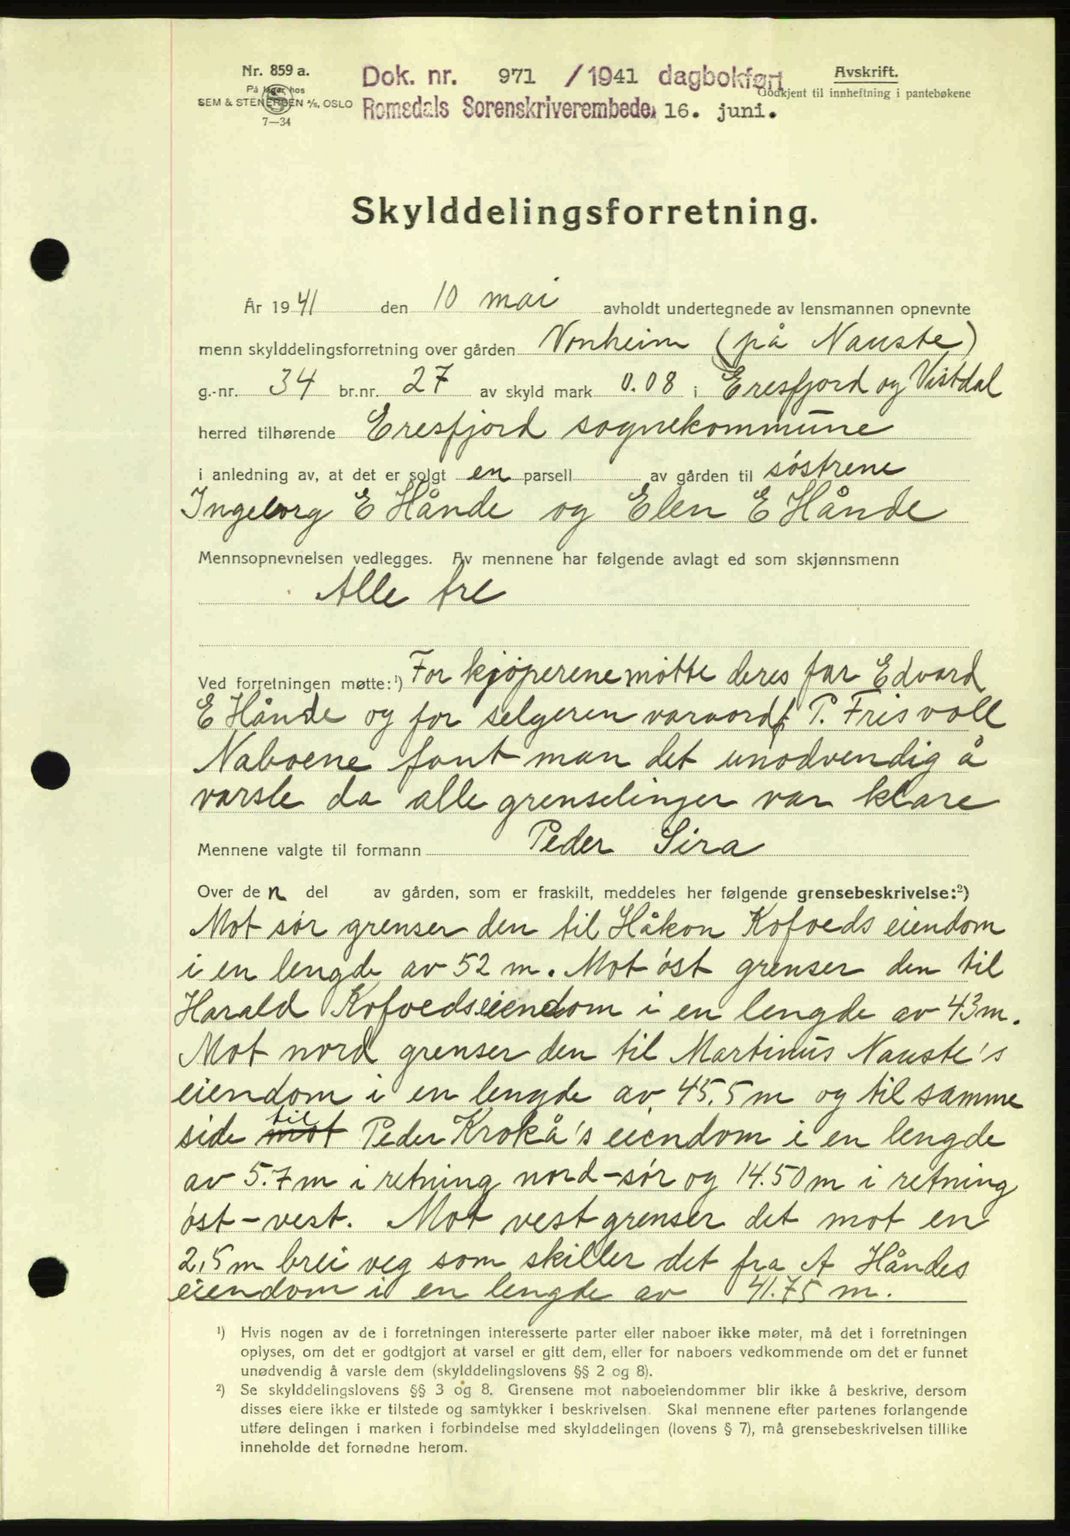 Nr. 859 a.
På lager hos
SEM & STENERSEN A/S, OSLO
7—34
Dok. nr. 971 /1941 dagbokført
Romsdals Sorenskriverembede, 16. juni.
Avskrift.
Godkjent til innheftning i pantebøkene
Skylddelingsforretning.
År 1941 den 10 mai avholdt undertegnede av lensmannen opnevnte
menn skylddelingsforretning over gården Vonheim (på Nauste)
g.-nr. 34 br.nr. 27 av skyld mark 0.08 i Eresfjord og Vistdal
herred tilhørende Eresfjord sognekommune
i anledning av, at det er solgt en parsell av gården til søstrene
Ingeborg E Hånde og Elen E Hånde
Mennsopnevnelsen vedlegges. Av mennene har følgende avlagt ed som skjønnsmenn
Alle tre
Ved forretningen møtte:¹) For kjøperene møtte deres far Edvard
E Hånde og for selgeren varaordf. P. Frisvoll
Naboene fant man det unødvendig å
varsle da alle grenselinjer var klare
Mennene valgte til formann Peder Sira
Over den del av gården, som er fraskilt, meddeles her følgende grensebeskrivelse:²)
Mot sør grenser den til Håkon Kofoeds eiendom
i en lengde av 52 m. Mot øst grenser den til
Harald Kofoeds eiendom i en lengde av 43 m.
Mot nord grenser den til Martinus Nauste's
eiendom i en lengde av 45.5 m og til samme
side mot til Peder Krokå's eiendom i en lengde
av 5.7 m i retning nord-sør og 14.50 m i retning
øst-vest. Mot vest grenser det mot en
2,5 m brei veg som skiller det fra A Håndes
eiendom i en lengde av 41.75 m.
¹) Hvis nogen av de i forretningen interesserte parter eller naboer ikke møter, må det i forretningen
oplyses, om det er godtgjort at varsel er gitt dem, eller for naboers vedkommende om det er funnet
unødvendig å varsle dem (skylddelingslovens §§ 2 og 8).
²) Se skylddelingslovens §§ 3 og 8. Grensene mot naboeiendommer blir ikke å beskrive, dersom
disses eiere ikke er tilstede og samtykker i beskrivelsen. Skal mennene efter partenes forlangende
utføre delingen i marken i forbindelse med skylddelingen (lovens § 7), må grensebeskrivelsen tillike
inneholde det fornødne herom.